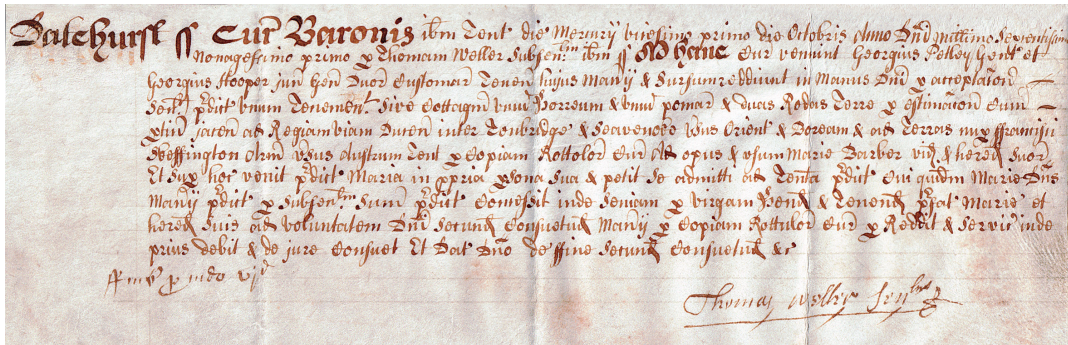 Dalehurst ss Cur Baronis ibm Tent die Mercurij vicesimo primo die Octobris Anno Dni Millimo Sexentissimo
Nonagessimo primo p Thomam Weller Subsen ibm ss Ad hanc Cur veniunt Georgius Petley Gent et
Georgius Hooper jun Gen Duo Customar Tenen hujus Manij & Sursumreddiunt in Manus Dni p acceptation
Sen pdict unum Tenement Sive Cottagm unu Horreum & unu pomar & duas Rodas Terre p estimation Cum
ptin jacen ad Regiamviam Ducen inter Tonbridge & Seavenock vsus Orient & Boream & ad Terras nup ffrancisci
Skeffington Arm vsus Austrum Tent p Copiam Rottolor Cur Ad opus & vsum Marie Barber vid & hered Suor
Et Sup hoc venit pdict Maria in ppria psona Sua & petit Se admitti ad Tenta pdict Cui quidm Marie Dns
Manij pdict p Subsen Suum pdict Concessit inde Seisiam p virgam Hend & Tenend pfat Marie et
hered Suis ad voluntatem Dni Secund Consuetud Manij p Copiam Rottulor Cur p Reddit & Servic inde
prius debit & de jure Consuet Et Dat Dno de ffine Secund Consuetud &c
vjd
Thomas Weller